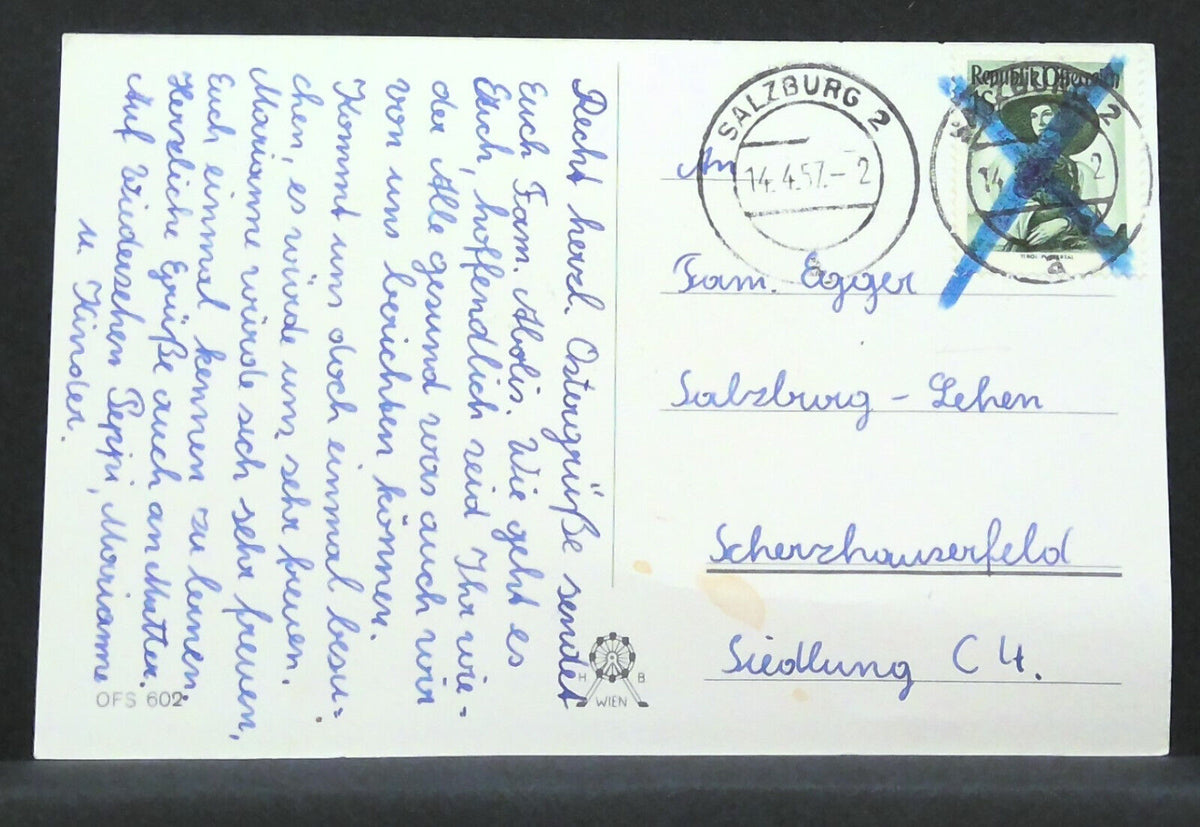 Recht herzl. Ostergrüße sendet
Euch Fam. Abolis. Wie geht es
Euch, hoffendlich seid Ihr wie-
der Alle gesund was auch wir
von uns berichten können.
Kommt uns doch einmal besu-
chen, es würde uns sehr freuen.
Marianne würde sich sehr freuen,
Euch einmal kennen zu lernen.
Herzliche Grüße auch an Mutter.
Auf Wiedersehen Peppi, Marianne
u. Kinder.
OFS 602
H B
WIEN
SALZBURG 2
14.4.57.- 2
a
Republik Österreich
1S
2
14
2
a
An
Fam. Egger
Salzburg - Lehen
Scherzhauserfeld
Siedlung C 4.